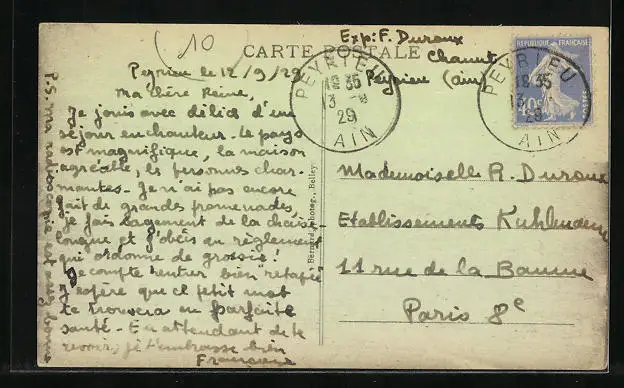 10
CARTE POSTALE
Exp: F. Duroux
Chanut
Peyrieu (ain)
PEYRIEU
18 35
13 -9
29
AIN
PEYRIEU
18 35
13
29
AIN
REPUBLIQUE FRANÇAISE
40c
Peyrieu le 12/9/29
Ma chère Reine,
Je jouis avec délices d'un
séjour enchanteur. Le pays
est magnifique, la maison
agréable, les personnes char-
mantes. Je n'ai pas encore
fait de grandes promenades,
je fais largement de la chaise
longue et j'obéis au règlement
qui ordonne de grossir!
Je compte rentrer bien "retapée"
J'espère que ce petit mot
te trouvera en parfaite
santé. En attendant de te
revoir, je t'embrasse bien
Françoise
P.S. Ma radioscopie est assez bonne
Bernard, photog., Belley.
Mademoiselle R. Duroux
Etablissements Kuhlmann
11 rue de la Baume
Paris 8e